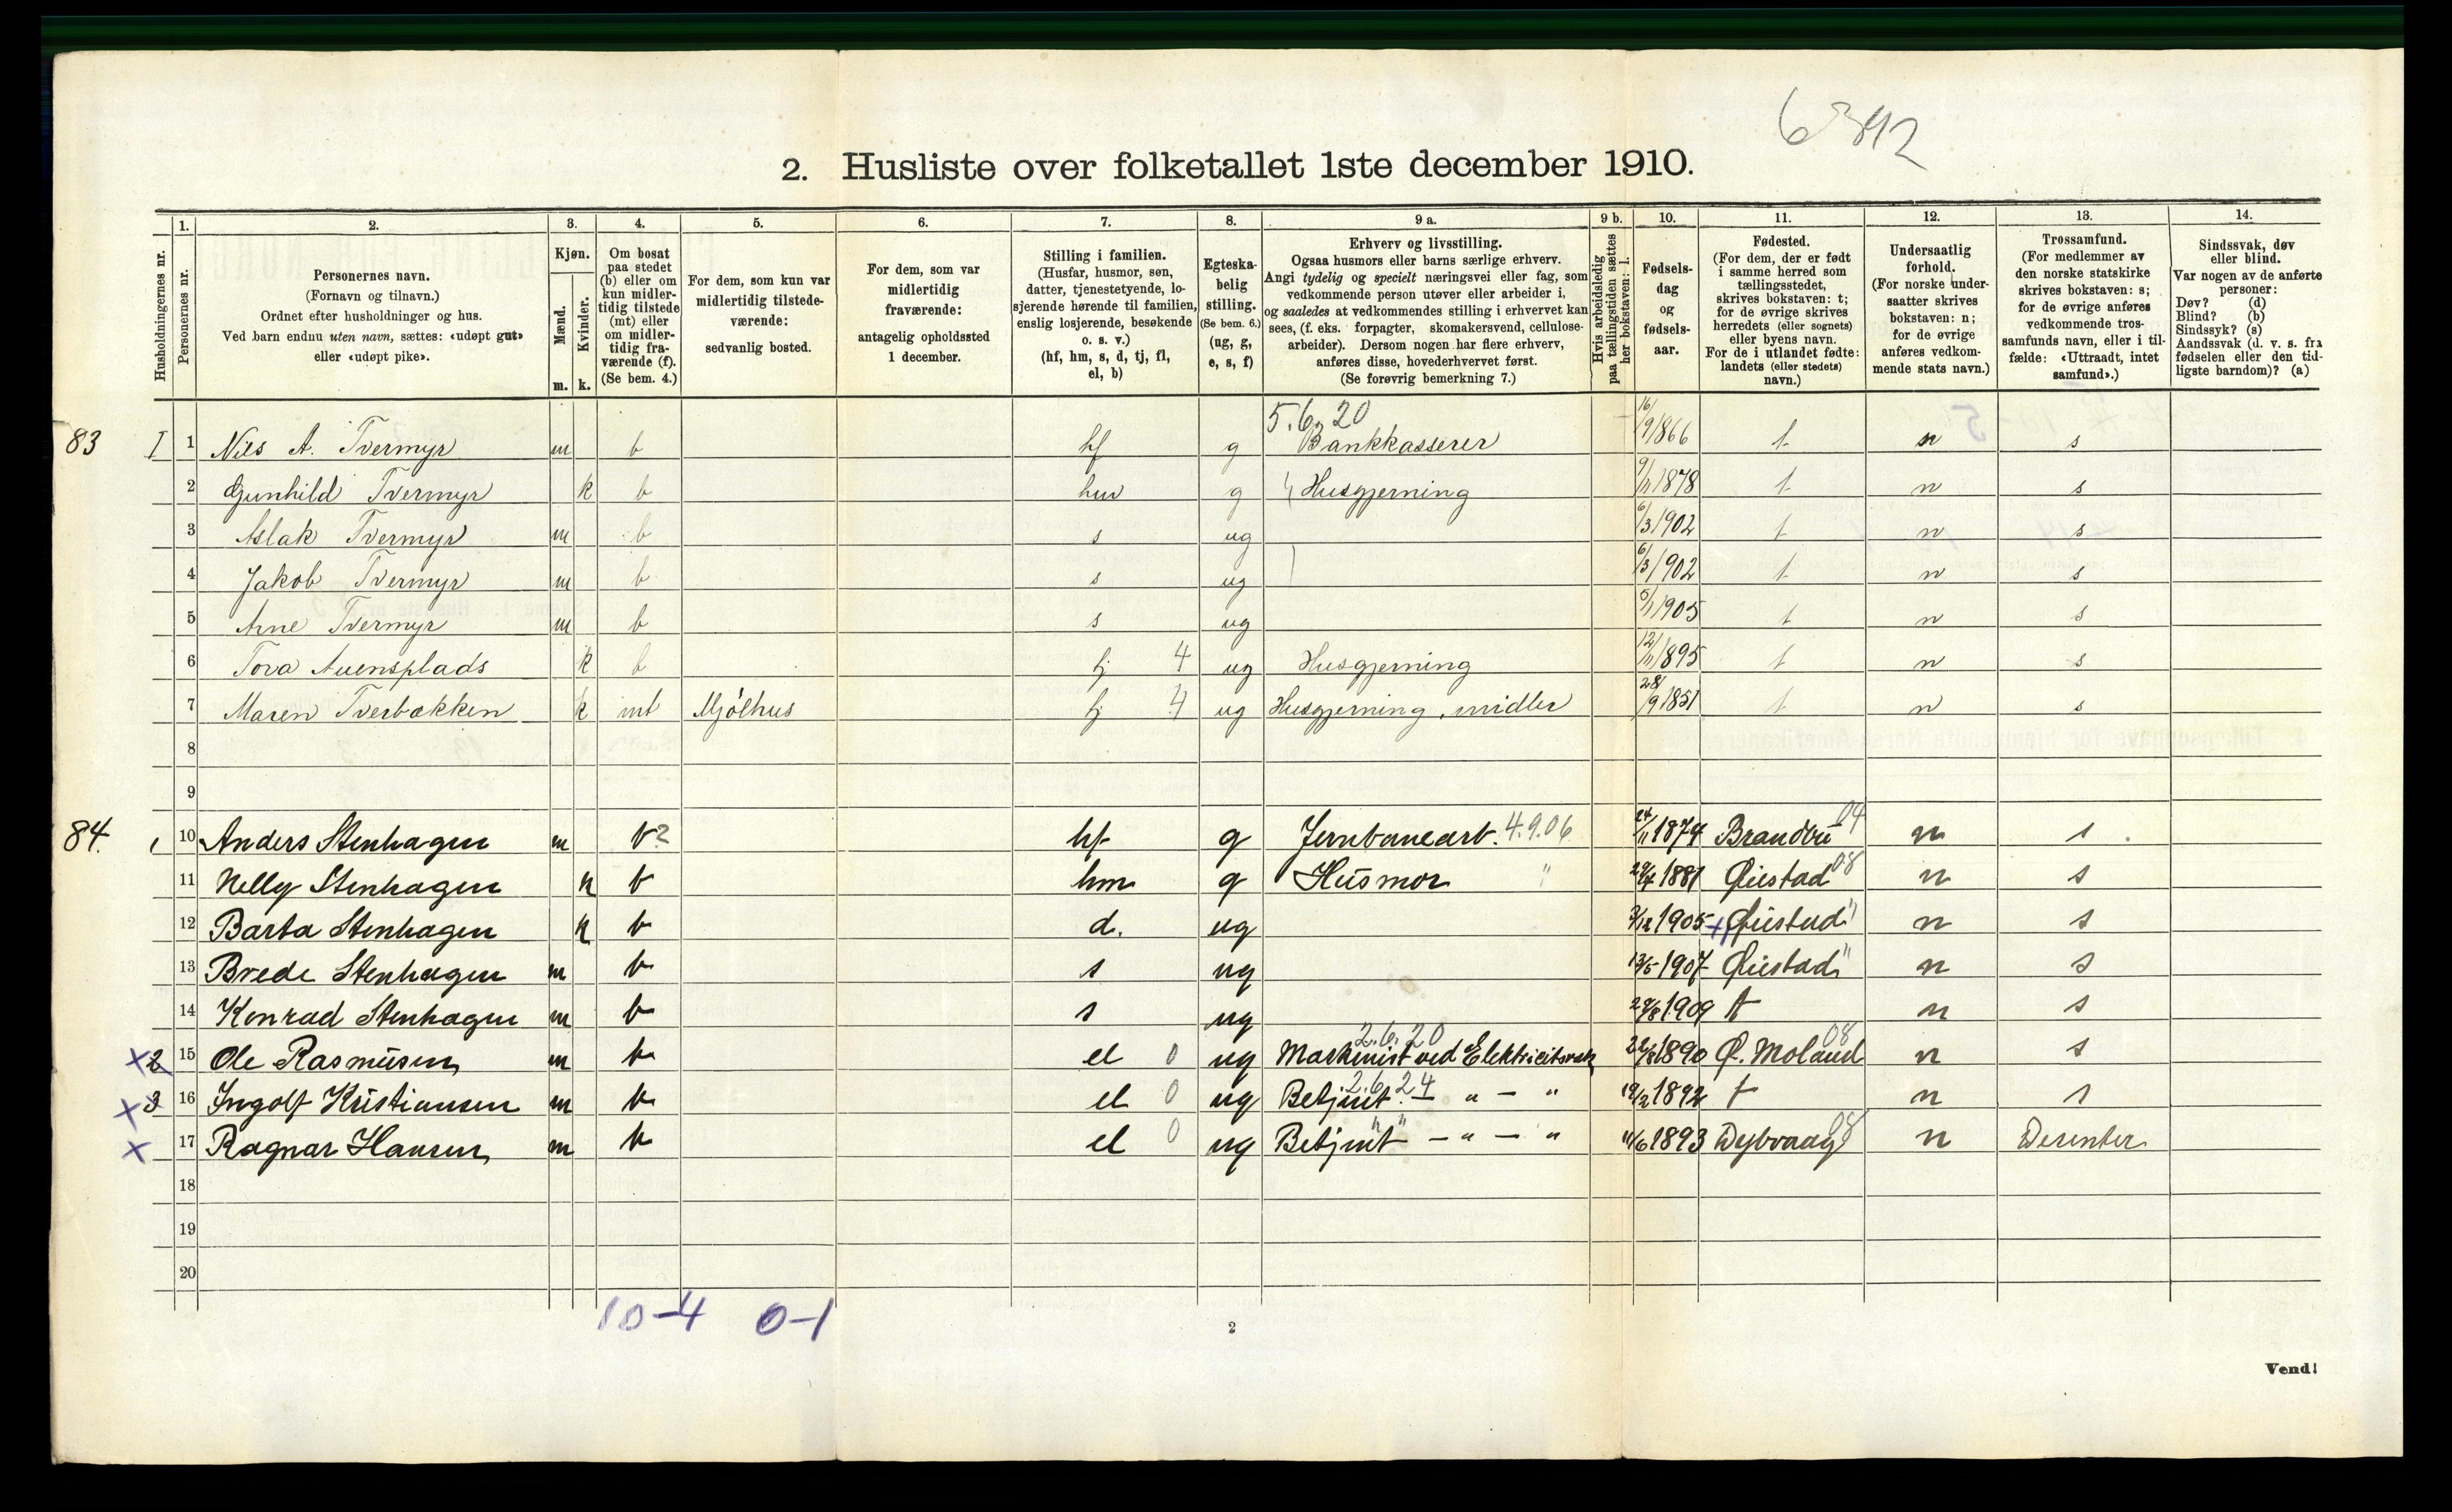 6392
2. Husliste over folketallet 1ste december 1910.
Husholdningernes nr.
1. Personernes nr.
2. Personernes navn.
(Fornavn og tilnavn.)
Ordnet efter husholdninger og hus.
Ved barn endnu uten navn, sættes: «udøpt gut»
eller «udøpt pike».
3. Kjøn.
Mænd. Kvinder.
m. k.
4. Om bosat
paa stedet
(b) eller om
kun midler-
tidig tilstede
(mt) eller
om midler-
tidig fra-
værende (f).
(Se bem. 4.)
5. For dem, som kun var
midlertidig tilstede-
værende:
sedvanlig bosted.
6. For dem, som var
midlertidig
fraværende:
antagelig opholdssted
1 december.
7. Stilling i familien.
(Husfar, husmor, søn,
datter, tjenestetyende, lo-
sjerende hørende til familien,
enslig losjerende, besøkende
o. s. v.)
(hf, hm, s, d, tj, fl,
el, b)
8. Egteska-
belig
stilling.
(Se bem. 6.)
(ug, g,
e, s, f)
9 a. Erhverv og livsstilling.
Ogsaa husmors eller barns særlige erhverv.
Angi tydelig og specielt næringsvei eller fag, som
vedkommende person utøver eller arbeider i,
og saaledes at vedkommendes stilling i erhvervet kan
sees, (f. eks. forpagter, skomakersvend, cellulose-
arbeider). Dersom nogen har flere erhverv,
anføres disse, hovederhvervet først.
(Se forøvrig bemerkning 7.)
9 b. Hvis arbeidsledig
paa tællingstiden sættes
her bokstaven: l.
10. Fødsels-
dag
og
fødsels-
aar.
11. Fødested.
(For dem, der er født
i samme herred som
tællingsstedet,
skrives bokstaven: t;
for de øvrige skrives
herredets (eller sognets)
eller byens navn.
For de i utlandet fødte:
landets (eller stedets)
navn.)
12. Undersaatlig
forhold.
(For norske under-
saatter skrives
bokstaven: n;
for de øvrige
anføres vedkom-
mende stats navn.)
13. Trossamfund.
(For medlemmer av
den norske statskirke
skrives bokstaven: s;
for de øvrige anføres
vedkommende tros-
samfunds navn, eller i til-
fælde: «Uttraadt, intet
samfund».)
14. Sindssvak, døv
eller blind.
Var nogen av de anførte
personer:
Døv? (d)
Blind? (b)
Sindssyk? (s)
Aandssvak (d. v. s. fra
fødselen eller den tid-
ligste barndom)? (a)
5.6.20
83 I 1 Nils A. Tvermyr m b hf g Bankkasserer 16/9 1866 t n s
2 Gunhild Tvermyr k b hm g Husgjerning 9/11 1878 t n s
3 Aslak Tvermyr m b s ug 6/3 1902 t n s
4 Jakob Tvermyr m b s ug 6/3 1902 t n s
5 Arne Tvermyr m b s ug 5/1 1905 t n s
6 Tova Auensplads k b tj 4 ug Husgjerning 12/11 1895 t n s
7 Maren Tverbækken k mt Mjölhus tj 4 ug Husgjerning, midler 28/9 1851 t n s
8
9
84. 1 10 Anders Stenhagen m b ? hf g Jernbanearb. 4.9.06 24/11 1874 Brandbu 04 n s
11 Nelly Stenhagen k b hm g Husmor " 29/4 1881 Øiestad 08 n s
12 Barta Stenhagen k b d. ug 3/12 1905 + Øiestad " n s
13 Brede Stenhagen m b s ug 13/5 1907 Øiestad " n s
14 Konrad Stenhagen m b s ug 29/8 1909 t n s
2.6.20
x 2 15 Ole Rasmusen m b el 0 ug Maskinist ved Elektricitsverk 22/8 1890 Ø. Moland 08 n s
2.6.24
x 3 16 Ingolf Kristiansen m b el 0 ug Betjent - " - " 19/2 1892 t n s
x 17 Ragnar Hansen m b el 0 ug Betjent - " - " 11/6 1893 Dybvaag 08 n Desenter
18
19
20
10-4 0-1
2
Vend!